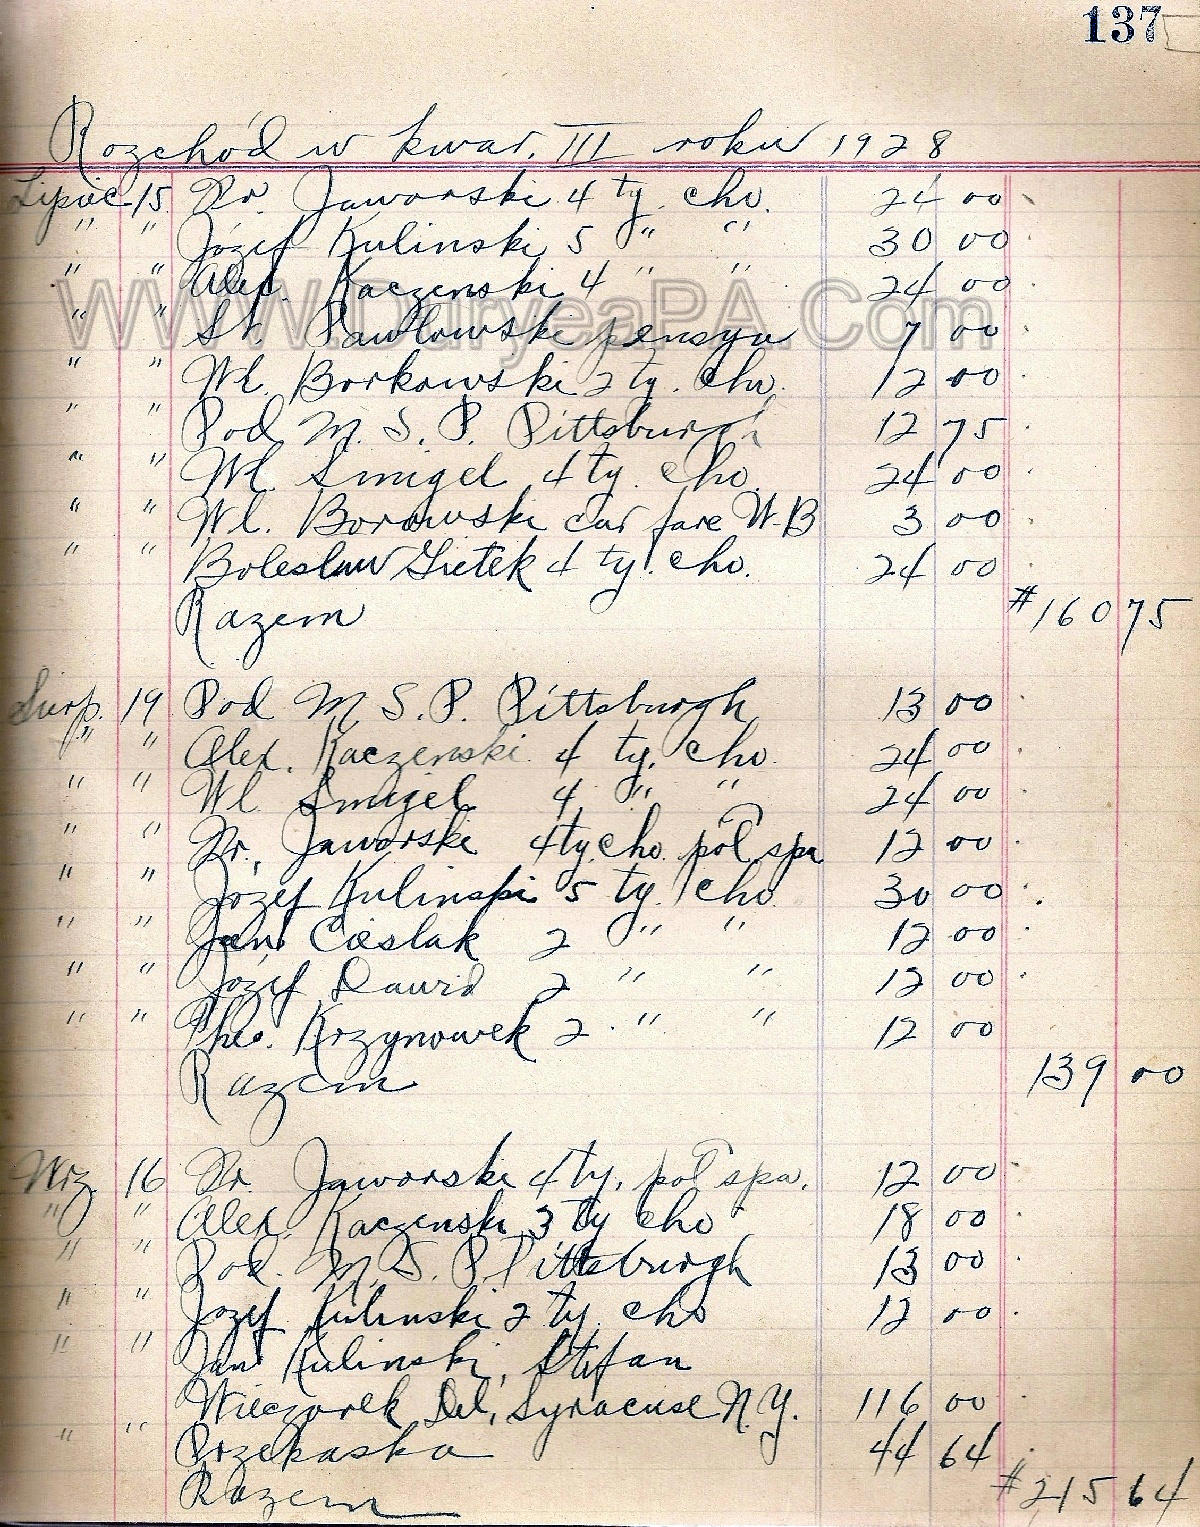 137
Rozchód w kwar. III roku 1928
Lipiec 15 Fr. Jaworski 4 ty. cho. 24 00
" " Józef Kulinski 5 " " 30 00
" " Alex. Kaczenski 4 " " 24 00
" " St. Pawlowski pensya 7 00
" " Wl. Borkowski 2 ty. cho. 12 00
" " Pod. M. S. P. Pittsburgh 12 75
" " Wl. Smigel 4 ty. cho. 24 00
" " Wl. Borowski car fare W-B 3 00
" " Boleslaw Gietek 4 ty. cho. 24 00
Razem #160 75
Sierp. 19 Pod M. S. P. Pittsburgh 13 00
" " Alex. Kaczenski 4 ty. cho. 24 00
" " Wl. Smigel 4 " " 24 00
" " Fr. Jaworski 4 ty. cho. pół spa 12 00
" " Józef Kulinski 5 ty. cho. 30 00
" " Jan Cieslak 2 " " 12 00
" " Józef Dawid 2 " " 12 00
" " Theo. Krzynowek 2 " " 12 00
Razem 139 00
Wrz. 16 Fr. Jaworski 4 ty. pół spa. 12 00
" " Alex. Kaczenski 3 ty cho 18 00
" " Pod. M. S. P. Pittsburgh 13 00
" " Jozef Kulinski 2 ty. cho 12 00
" " Jan Kulinski, Stefan
Wieczorek Del, Syracuse N.Y. 116 00
" " Przekaska 44 64
Razem #215 64
WWW.DuryeaPA.Com